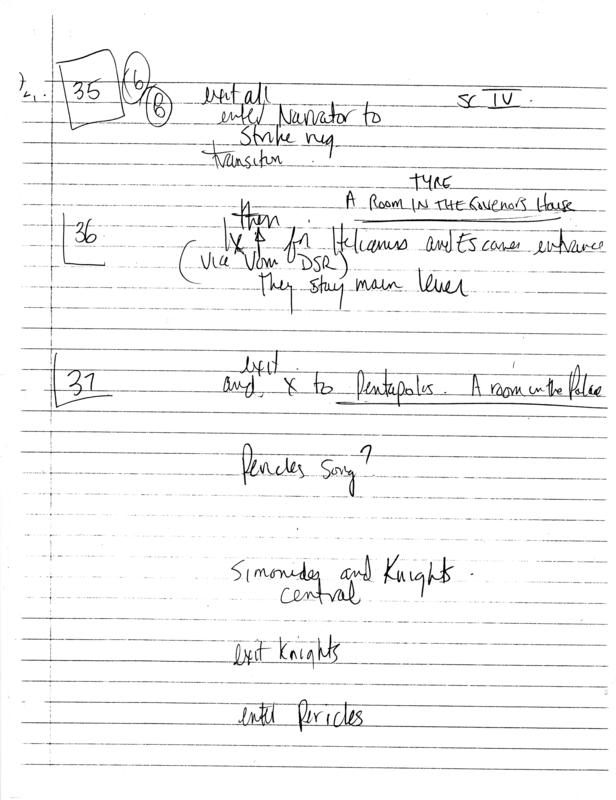 35 6 B
exit all
SC IV.
enter Narrator to
Strike neg
transition
TYRE
A ROOM IN THE GOVENORS HOUSE
36
then
X for Helicanus and Escanes entrance
(vice Vom DSR)
they stay main level
37
exit
and, X to Pentapolis. A room in the Palace
Pericles Song?
Simonides and Knights.
central
exit Knights
enter Pericles